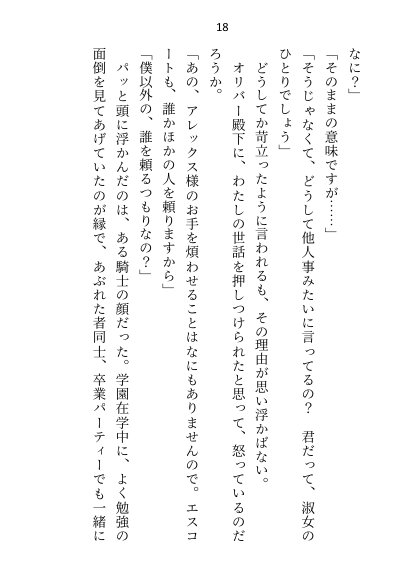 18
なに？」
「そのままの意味ですが……」
「そうじゃなくて、どうして他人事みたいに言ってるの？　君だって、淑女の
ひとりでしょう」
　どうしてか苛立ったように言われるも、その理由が思い浮かばない。
　オリバー殿下に、わたしの世話を押しつけられたと思って、怒っているのだ
ろうか。
「あの、アレックス様のお手を煩わせることはなにもありませんので。エスコ
ートも、誰かほかの人を頼りますから」
「僕以外の、誰を頼るつもりなの？」
　パッと頭に浮かんだのは、ある騎士の顔だった。学園在学中に、よく勉強の
面倒を見てあげていたのが縁で、あぶれた者同士、卒業パーティーでも一緒に